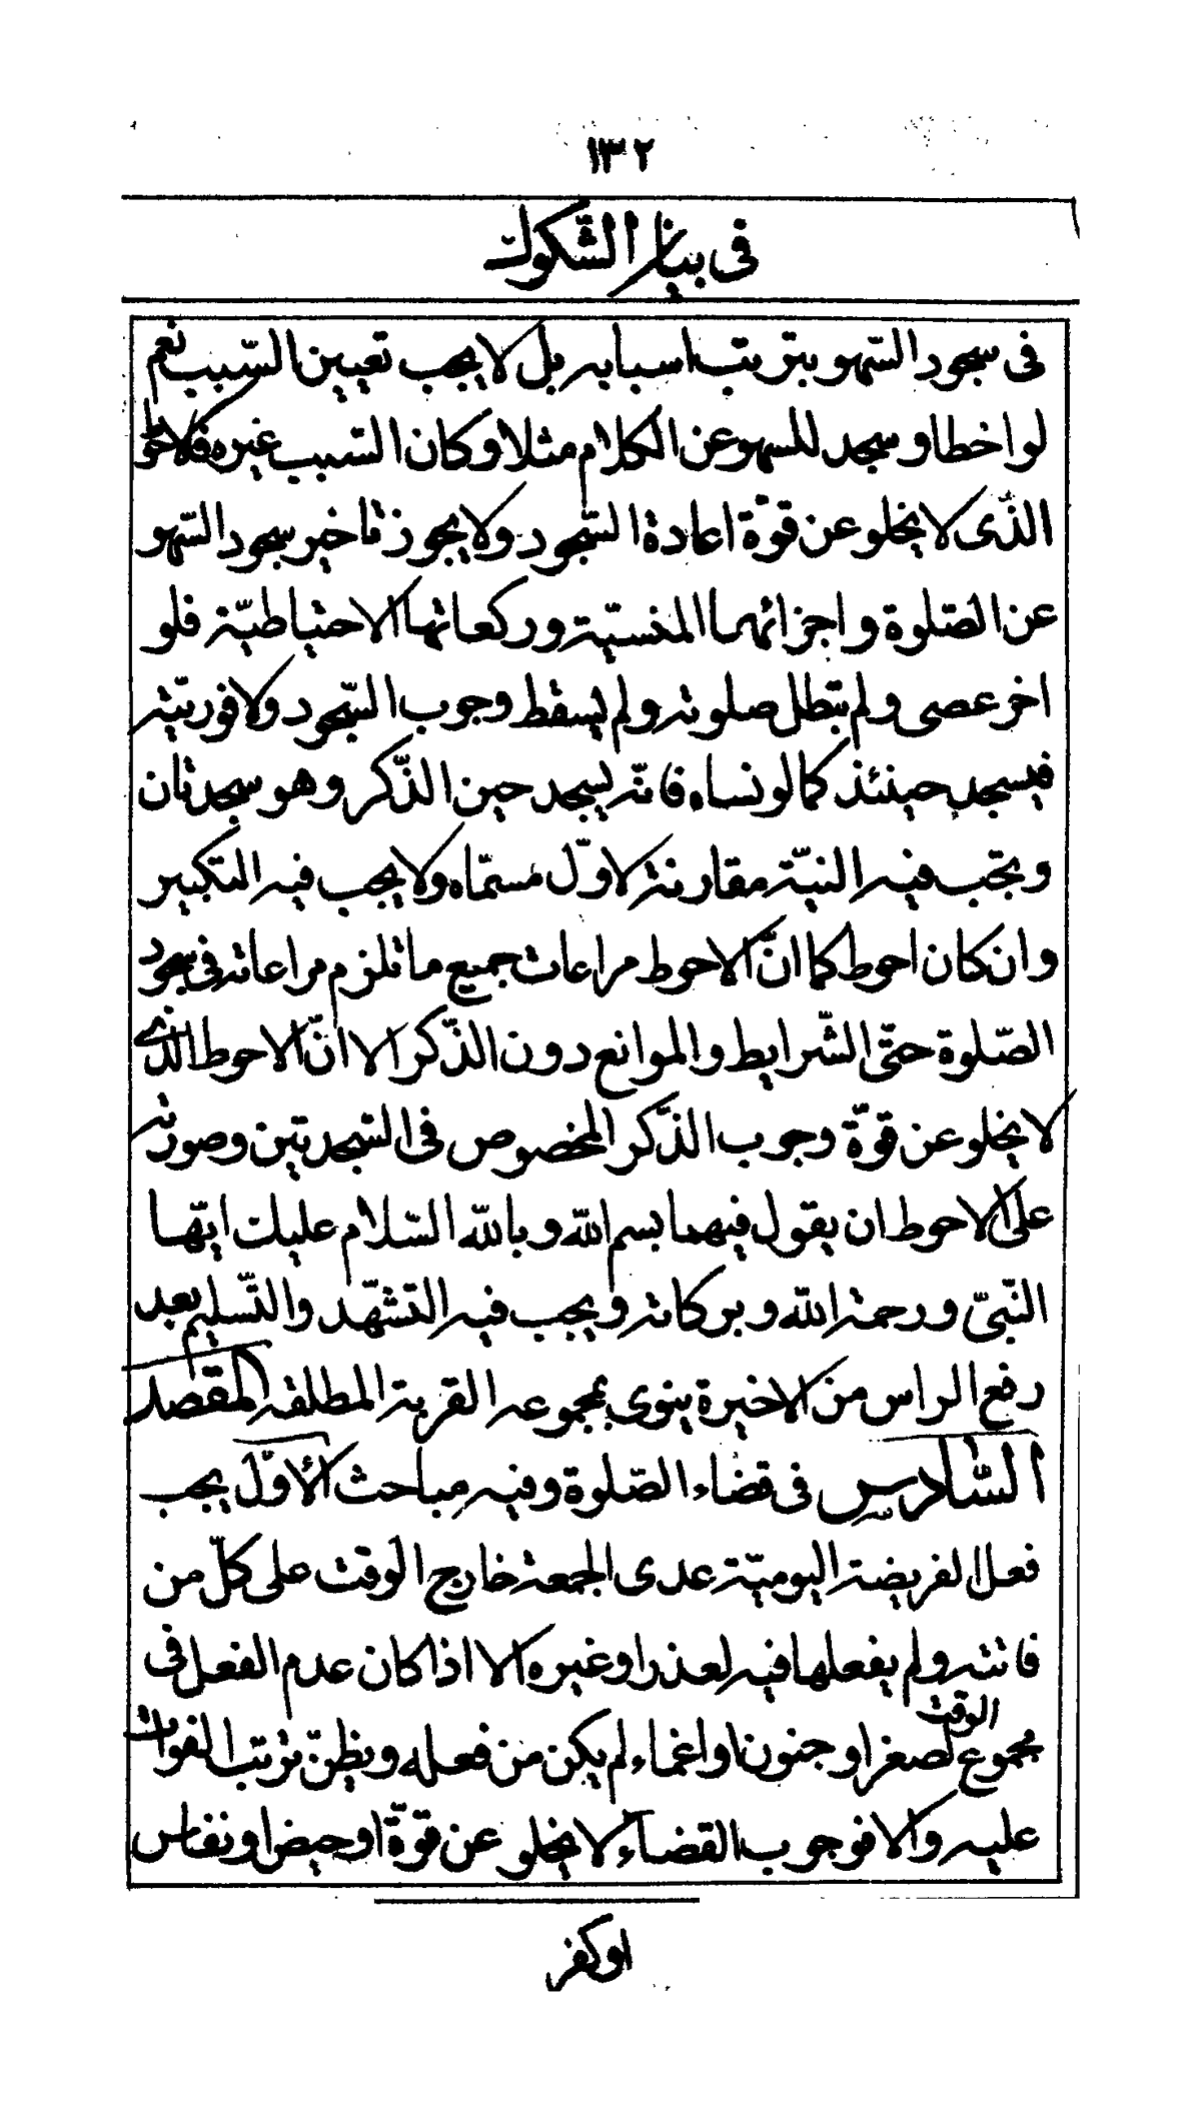 ١٣٢
في بيان الشّكوك
فى سجود السّهو بترتيب اسبابه بل لا يجب تعيين السّبب نعم
لو اخطا و سجد للسهو عن الكلام مثلا و كان السّبب غيره فلاحوط
الذّى لا يخلو عن قوّة اعادة السّجود ولا يجوز تاخير سجود السّهو
عن الصّلوة و اجزائها المنسيّة و ركعاتها الاحتياطيّة فلو
اخر عصى و لم تبطل صلوته و لم يسقط وجوب السّجود ولا فوريّته
فيسجد حينئذ كما لو نساه فانّه يسجد حين الذّكر و هو سجدتان
و تجب فيه النيّة مقارنة لاوّل مسمّاه ولا يجب فيه التكبير
و ان كان احوط كما انّ الاحوط مراعات جميع ما تلزم مراعاته فى سجود
الصّلوة حتّى الشّرايط و الموانع دون الذّكر الا انّ الاحوط الذى
لا يخلو عن قوّة وجوب الذّكر المخصوص فى السّجدتين و صورته
على الاحوط ان يقول فيهما بسم الله و بالله السّلام عليك ايّها
النّبىّ و رحمة الله و بركاته و يجب فيه التّشهّد و التّسليم بعد
رفع الراس من الاخيرة ينوى بمجموعه القربة المطلقه المقصد
السّادس فى قضاء الصّلوة و فيه مباحث الأوّل يجب
فعل الفريضة اليوميّة عدى الجمعة خارج الوقت على كلّ من
فاتته و لم يفعلها فيه لعذر او غيره الا اذا كان عدم الفعل فى
مجموع الوقت لصغر او جنون او اغماء لم يكن من فعله و يظنّ ترتب الفوات
عليه و الا فوجوب القضاء لا يخلو عن قوّة او حيض او نفاس
او كفر